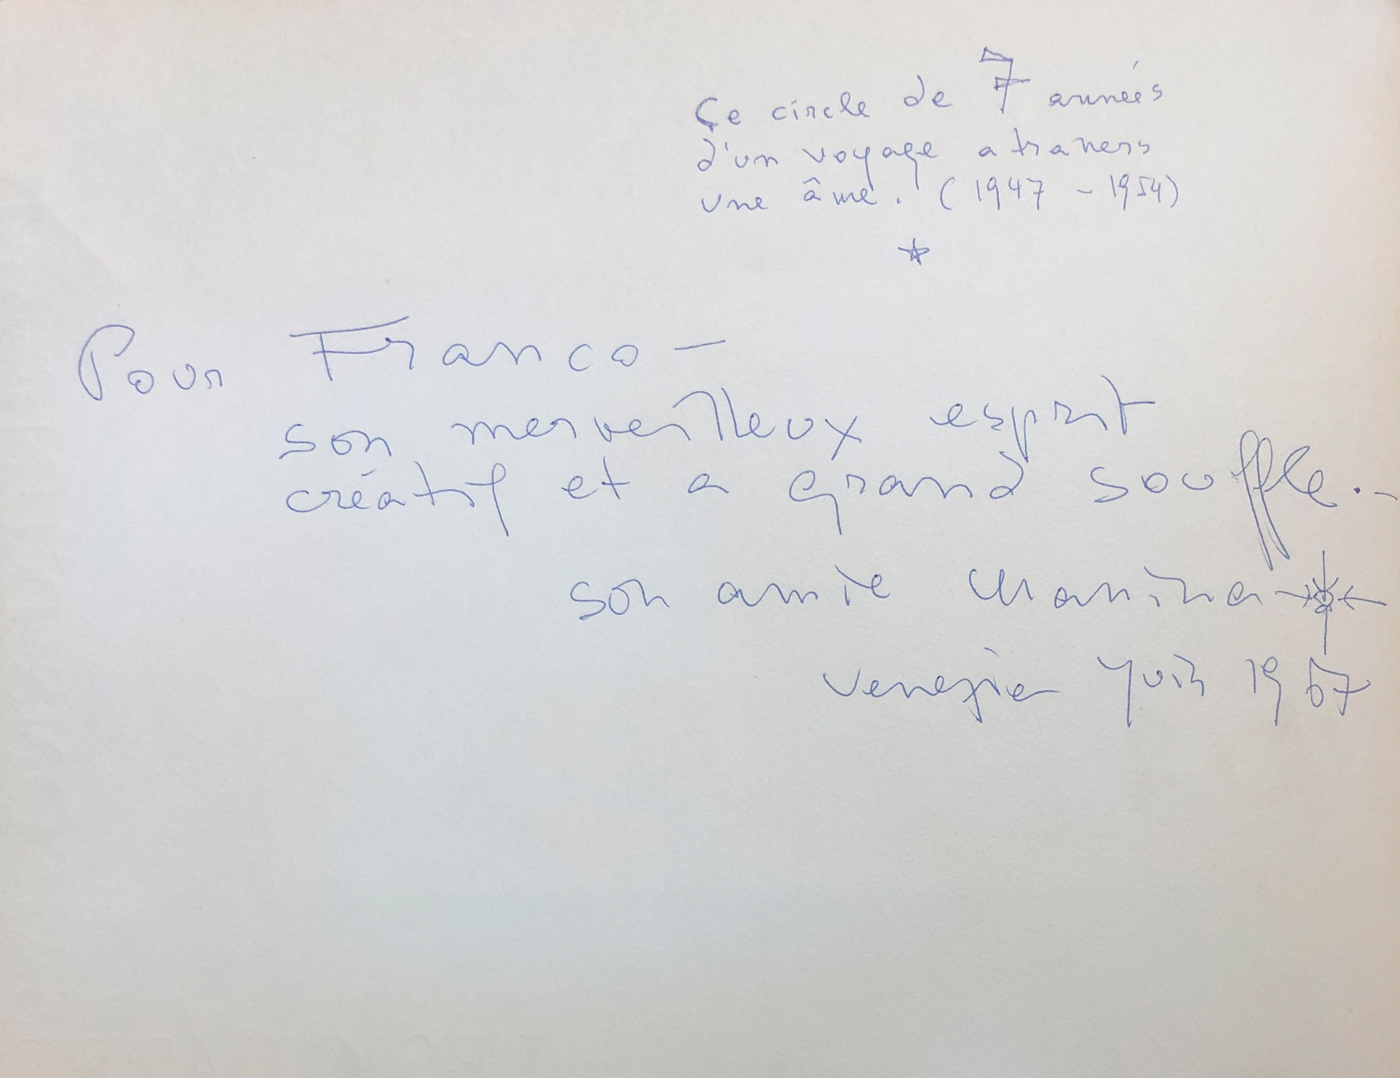 Çe circle de 7 années
d'un voyage a travers
une âme. (1947 - 1954)
Pour Franco -
son merveilleux esprit
créatif et a grand souffle..
son amie Manina
Venezia Juin 1967